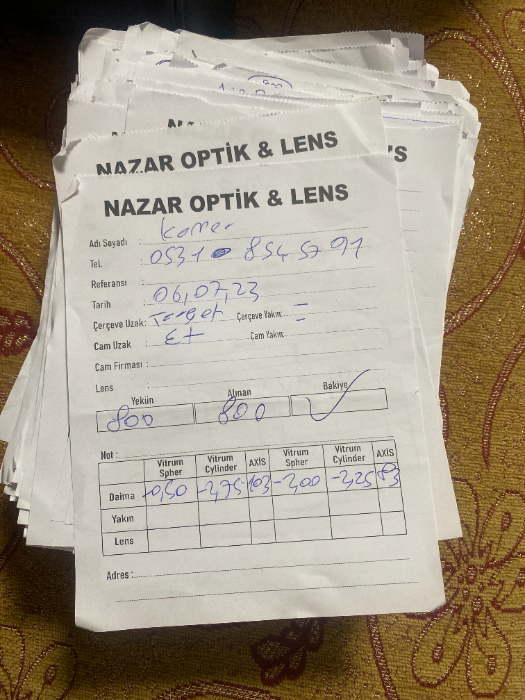 NAZAR OPTİK & LENS
NAZAR OPTİK & LENS
Adı Soyadı :
Tel. : 0531 854 57 91
Referansı :
Tarih : 06,07,23
Çerçeve Uzak: Target Çerçeve Yakın:
Cam Uzak : Cam Yakın:
Cam Firması :
Lens :
Yekün Alınan Bakiye
800 800 ✓
Not :
Vitrum Spher Vitrum Cylinder AXİS Vitrum Spher Vitrum Cylinder AXİS
Daima -0,50 103 83
Yakın
Lens
Adres :